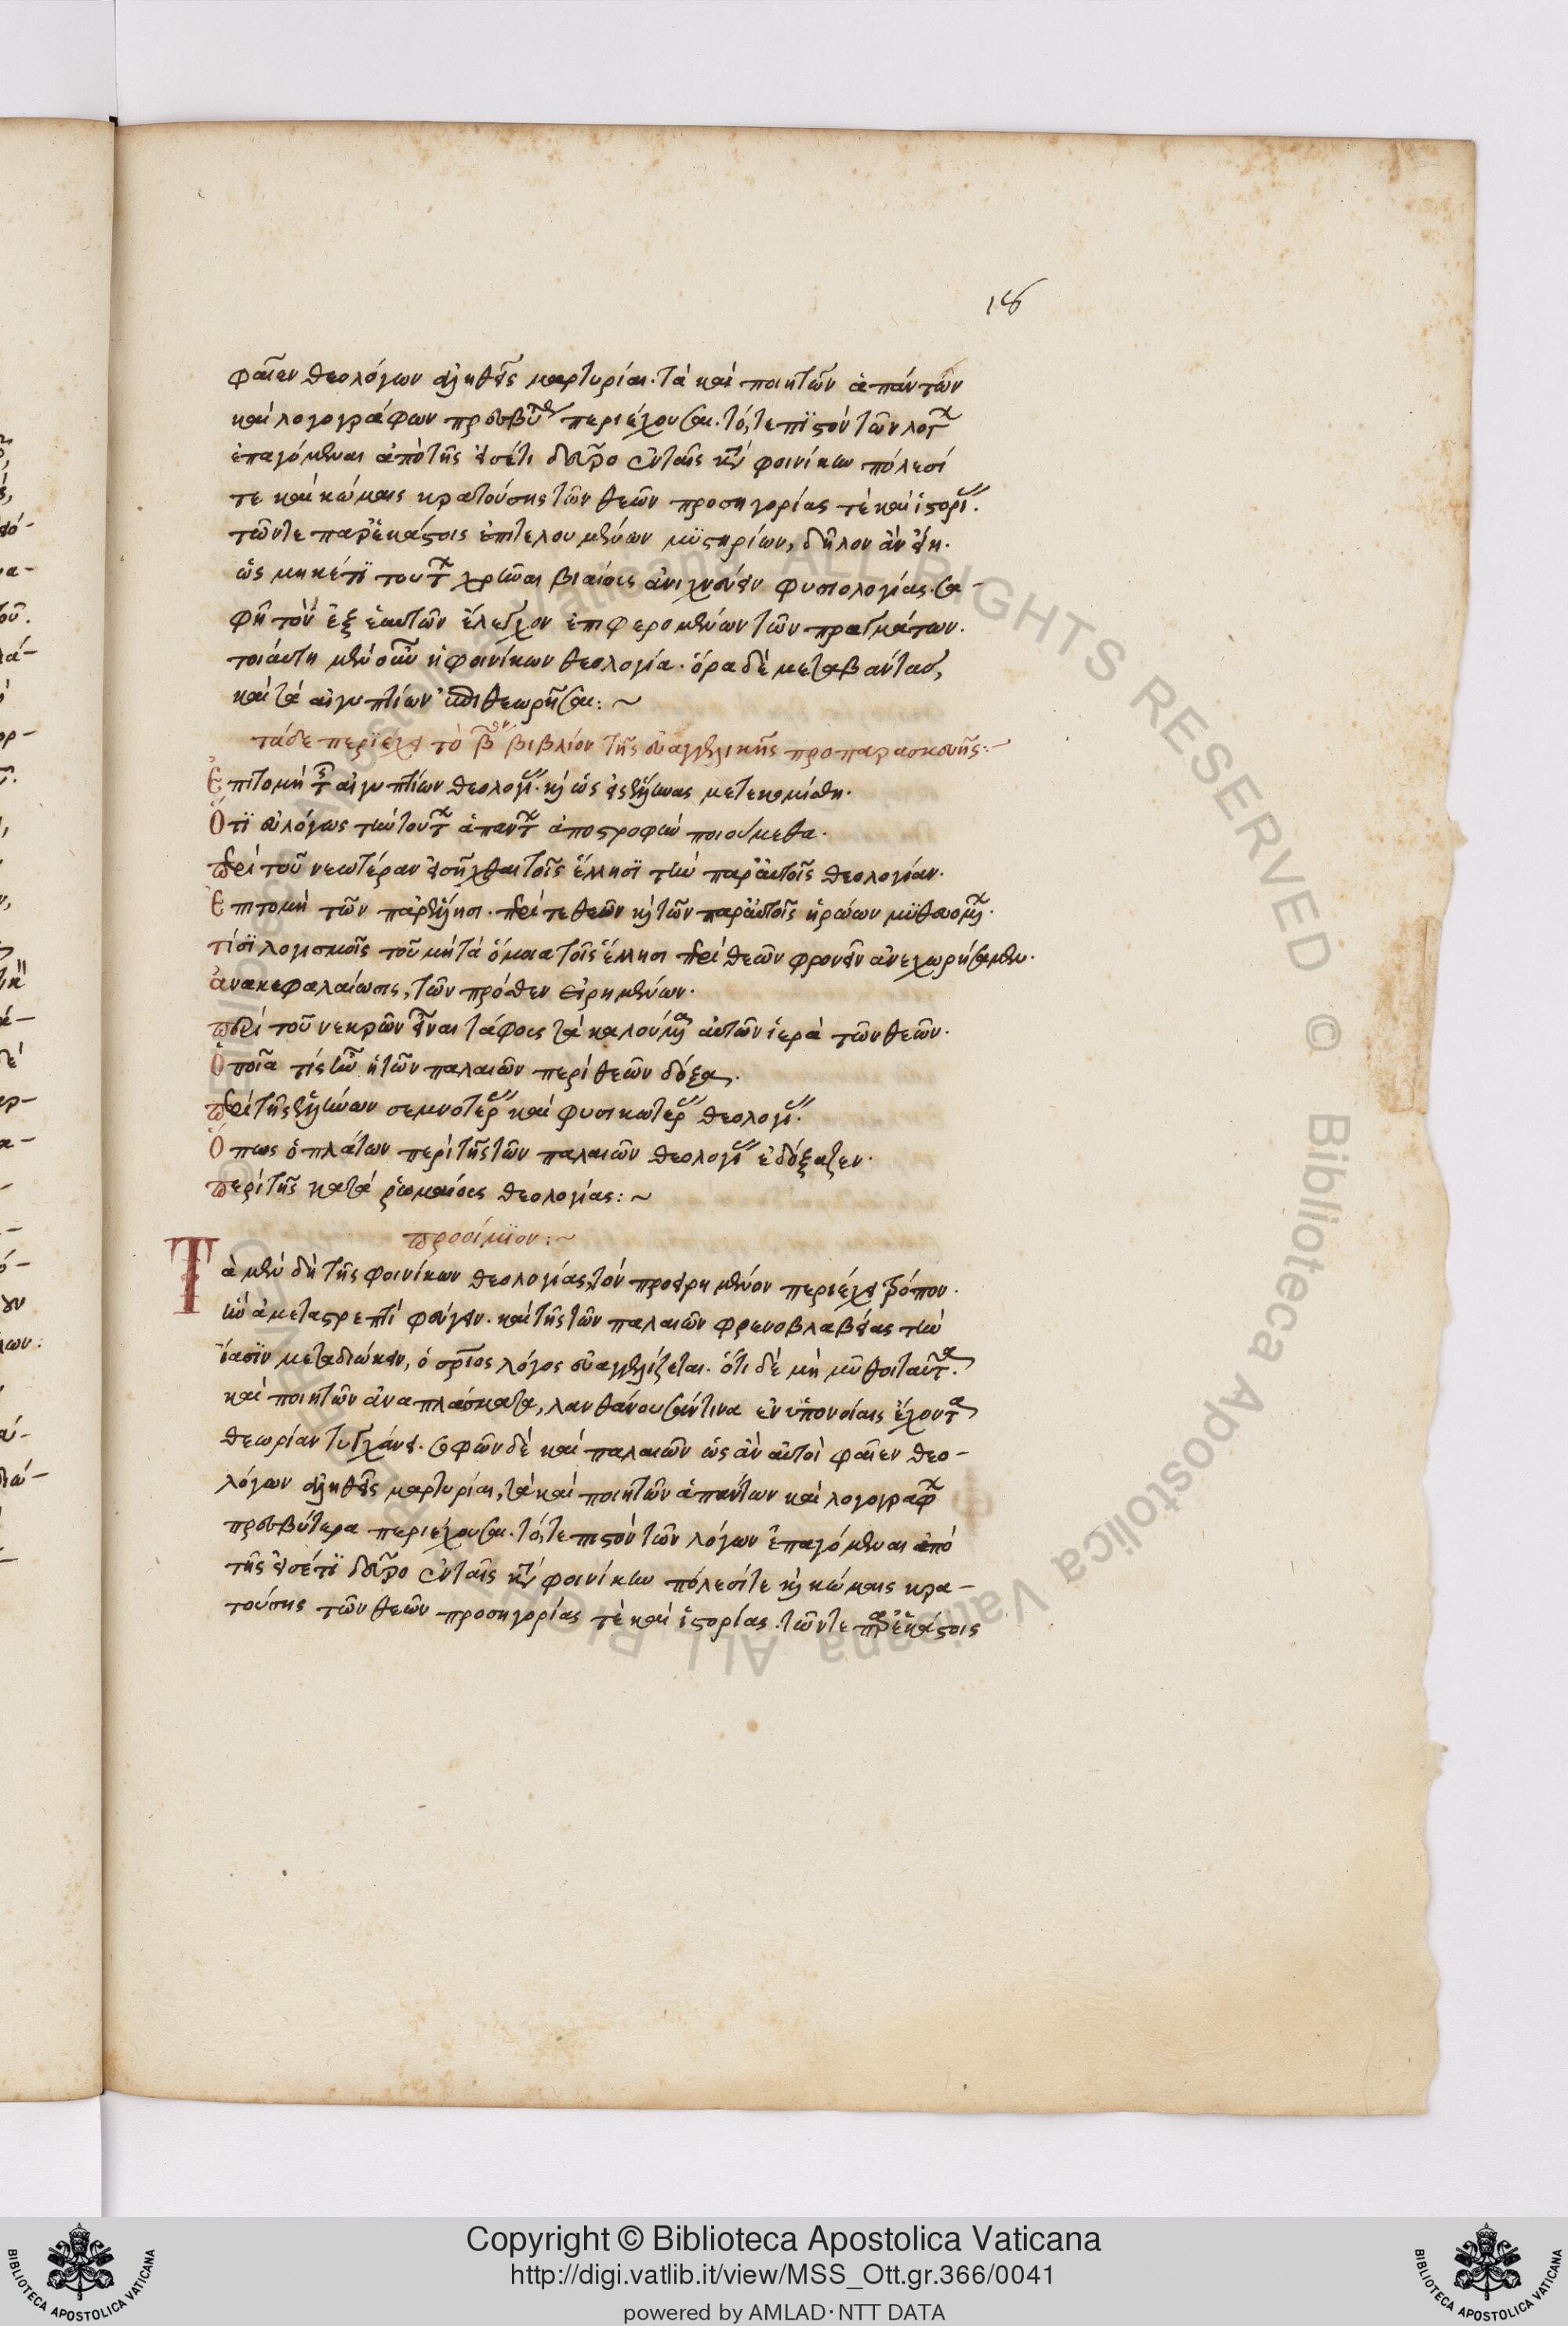 16
φαῖεν θεολόγων ἀληθεῖς μαρτυρίαι. τὰ καὶ ποιητῶν ἁπάντων
καὶ λογογράφων πρεσβύτερα περιέχουσαι. τό, τε πϊστὸν τῶν λόγων
ἐπαγόμεναι ἀπὸ τῆς εἰσέτι δεῦρο ἐν ταῖς κατὰ φοινίκην πόλεσί
τε καὶ κώμαις κρατούσης τῶν θεῶν προσηγορίας τὲ καὶ ἱστορίας.
τῶν τε παρ' ἑκάστοις ἐπιτελουμένων μϋστηρίων, δῆλον ἂν εἴη.
ὡς μηκέτϊ τούτων χρῆναι βιαίους ἀνιχνεύειν φυσιολογίας. σα-
φῆ τὸν ἐξ ἑαυτῶν ἔλεγχον ἐπιφερομένων τῶν πραγμάτων.
τοιαύτη μὲν οὖν ἡ φοινίκων θεολογία. ὅρα δὲ μεταβάντας,
καὶ τὰ αἰγυπτίων ἐπιθεωρῆσαι: ~
τάδε περϊέχει τὸ β̅ον βιβλίον τῆς εὐαγγελικῆς προπαρασκευῆς: ~
Ἐπιτομὴ τῆς αἰγυπτίων θεολογίας. καὶ ὡς εἰς ἕλληνας μετεκομίσθη.
Ὅτϊ εὐλόγως τὴν τούτων ἁπάντων ἀποστροφὴν ποιούμεθα.
περὶ τοῦ νεωτέραν εἰσῆχθαι τοῖς ἕλλησϊ τὴν παρ' αὐτοῖς θεολογίαν.
Ἐπιτομὴ τῶν παρ' ἕλλησι. περί τε θεῶν καὶ τῶν παρ' αὐτοῖς ἡρώων μϋθευομένων.
τίσϊ λογισμοῖς τοῦ μὴ τὰ ὅμοια τοῖς ἕλλησι περὶ θεῶν φρονεῖν ἀνεχωρήσαμεν.
ἀνακεφαλαίωσις, τῶν πρόσθεν εἰρημένων.
περὶ τοῦ νεκρῶν εἶναι τάφους τὰ καλούμενα αὐτῶν ἱερὰ τῶν θεῶν.
Ὁποῖα τίς ἦν ἡ τῶν παλαιῶν περὶ θεῶν δόξα.
περὶ τῆς ἑλλήνων σεμνοτέρας καὶ φυσικωτέρας θεολογίας.
Ὅπως ὁ πλάτων περὶ τῆς τῶν παλαιῶν θεολογίας ἐδόξαζεν.
περὶ τῆς κατὰ ῥωμαίους θεολογίας: ~
προοίμϊον: ~
Τὰ μὲν δὴ τῆς φοινίκων θεολογίας, τὸν προειρημένον περιέχει τρόπον.
ἣν ἀμεταστρεπτὶ φεύγειν. καὶ τῆς τῶν παλαιῶν φρενοβλαβείας τὴν
ἴασϊν μεταδιώκειν, ὁ σωτήριος λόγος εὐαγγελίζεται. ὅτι δὲ μὴ μῦθοι ταῦτα.
καὶ ποιητῶν ἀναπλάσματα, λανθάνουσάν τινα ἐν ὑπονοίαις ἔχοντα
θεωρίαν τυγχάνει. σοφῶν δὲ καὶ παλαιῶν ὡς ἂν αὐτοὶ φαῖεν θεο-
λόγων ἀληθεῖς μαρτυρίαι, τὰ καὶ ποιητῶν ἁπάντων καὶ λογογράφων
πρεσβύτερα περιέχουσαι. τό, τε πιστὸν τῶν λόγων ἐπαγόμεναι ἀπὸ
τῆς εἰσέτϊ δεῦρο ἐν ταῖς κατὰ φοινίκην πόλεσί τε καὶ κώμαις κρα-
τούσης τῶν θεῶν προσηγορίας τὲ καὶ ἱστορίας. τῶν τε παρ' ἑκάστοις
Copyright © Biblioteca Apostolica Vaticana
http://digi.vatlib.it/view/MSS_Ott.gr.366/0041
powered by AMLAD·NTT DATA